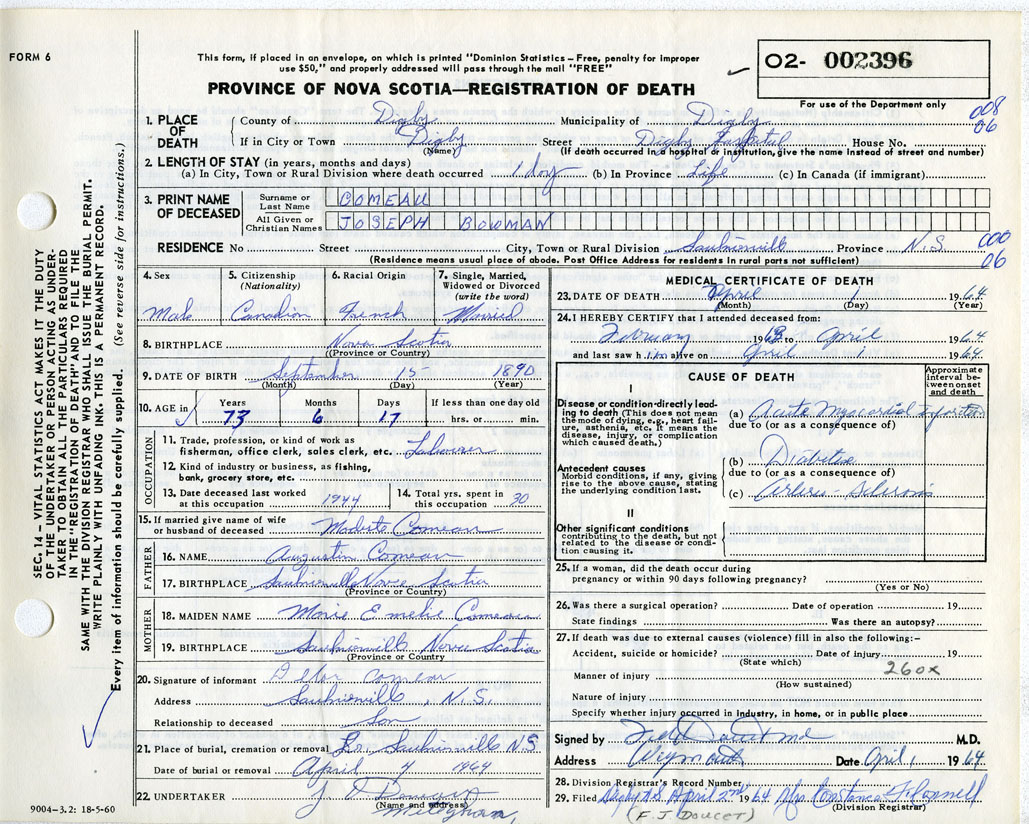 FORM 6
This form, if placed in an envelope, on which is printed "Dominion Statistics – Free, penalty for improper
use $50," and properly addressed will pass through the mail "FREE"
O2- 002396
PROVINCE OF NOVA SCOTIA—REGISTRATION OF DEATH
For use of the Department only
008
06
1. PLACE OF DEATH
County of Digby Municipality of Digby
If in City or Town Digby Street Digby Hospital House No.
(Name) (If death occurred in a hospital or institution, give the name instead of street and number)
2. LENGTH OF STAY (in years, months and days)
(a) In City, Town or Rural Division where death occurred 1 day (b) In Province Life (c) In Canada (if immigrant)
3. PRINT NAME OF DECEASED
Surname or Last Name COMEAU
All Given or Christian Names JOSEPH BOWMAN
RESIDENCE No Street City, Town or Rural Division Saulnierville Province N.S.
000
06
(Residence means usual place of abode. Post Office Address for residents in rural parts not sufficient)
4. Sex Male
5. Citizenship (Nationality) Canadian
6. Racial Origin French
7. Single, Married, Widowed or Divorced (write the word) Married
8. BIRTHPLACE Nova Scotia
(Province or Country)
9. DATE OF BIRTH September 15 1890
(Month) (Day) (Year)
10. AGE in Years Months Days If less than one day old
73 6 17 hrs. or min.
OCCUPATION
11. Trade, profession, or kind of work as
fisherman, office clerk, sales clerk, etc. Laborer
12. Kind of industry or business, as fishing,
bank, grocery store, etc.
13. Date deceased last worked
at this occupation 1944
14. Total yrs. spent in
this occupation 30
15. If married give name of wife
or husband of deceased Comeau
FATHER
16. NAME Augustin Comeau
17. BIRTHPLACE Saulnierville Nova Scotia
(Province or Country)
MOTHER
18. MAIDEN NAME Marie Comeau
19. BIRTHPLACE Saulnierville Nova Scotia
(Province or Country)
20. Signature of informant Comeau
Address Saulnierville, N.S.
Relationship to deceased Son
21. Place of burial, cremation or removal Saulnierville N.S
Date of burial or removal April 4 1964
22. UNDERTAKER
(Name and address)
Meteghan,
MEDICAL CERTIFICATE OF DEATH
23. DATE OF DEATH April 1 1964
(Month) (Day) (Year)
24. I HEREBY CERTIFY that I attended deceased from:
February 1963 to April 1964
and last saw him alive on April 1 1964
CAUSE OF DEATH
Approximate interval between onset and death
I
Disease or condition directly leading to death (This does not mean the mode of dying, e.g., heart failure, asthenia, etc. It means the disease, injury, or complication which caused death.)
(a) Acute Myocardial Infarction
due to (or as a consequence of)
Antecedent causes
Morbid conditions, if any, giving rise to the above cause, stating the underlying condition last.
(b) Diabetes
due to (or as a consequence of)
(c) Arterio-Sclerosis
II
Other significant conditions
contributing to the death, but not related to the disease or condition causing it.
25. If a woman, did the death occur during
pregnancy or within 90 days following pregnancy?
(Yes or No)
26. Was there a surgical operation? Date of operation 19
State findings Was there an autopsy?
27. If death was due to external causes (violence) fill in also the following:–
Accident, suicide or homicide? Date of injury 19
(State which)
260X
Manner of injury
(How sustained)
Nature of injury
Specify whether injury occurred in industry, in home, or in public place
Signed by M.D.
Address Weymouth Date April, 1 1964
28. Division Registrar's Record Number
29. Filed Digby N.S April 2nd 1964 Mrs Constance
(Division Registrar)
(F. J DOUCET)
SEC. 14 – VITAL STATISTICS ACT MAKES IT THE DUTY
OF THE UNDERTAKER OR PERSON ACTING AS UNDER-
TAKER TO OBTAIN ALL THE PARTICULARS REQUIRED
IN THE "REGISTRATION OF DEATH" AND TO FILE THE
SAME WITH THE DIVISION REGISTRAR WHO SHALL ISSUE THE BURIAL PERMIT.
WRITE PLAINLY WITH UNFADING INK. THIS IS A PERMANENT RECORD.
Every item of information should be carefully supplied. (See reverse side for instructions.)
9004–3.2: 18-5-60